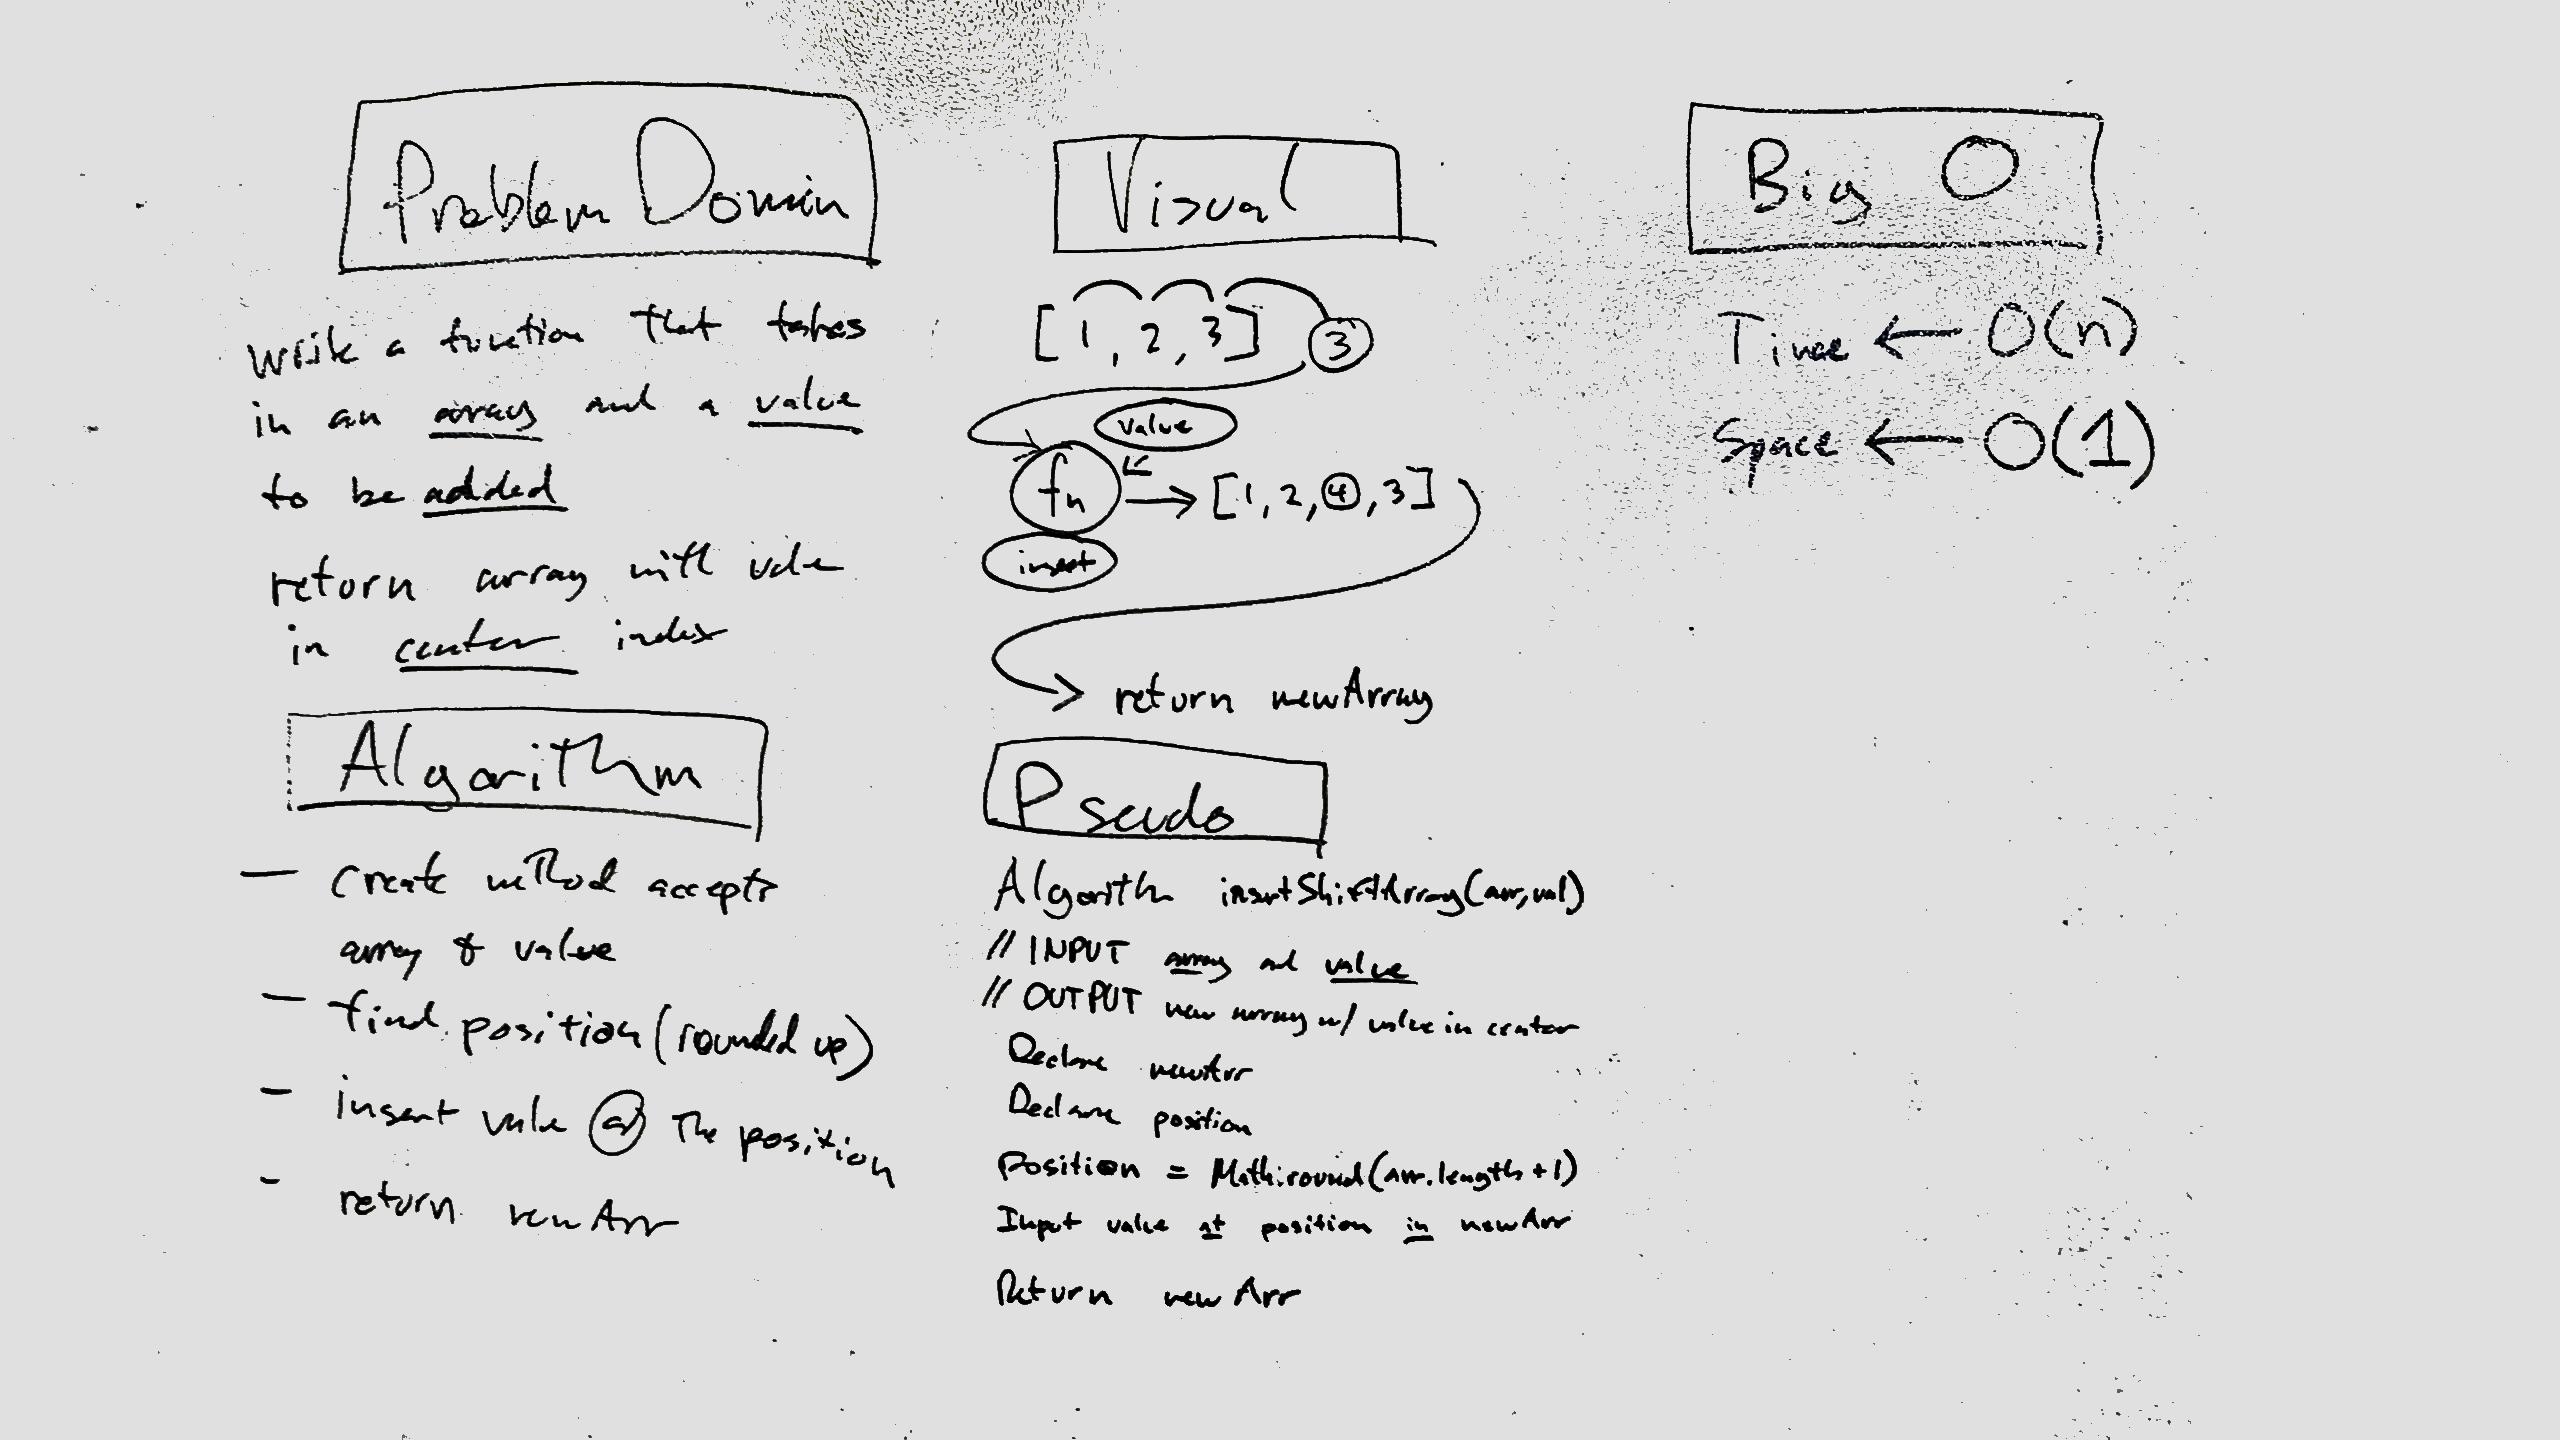 Problem Domain
Write a function that takes
in an array and a value
to be added
return array with value
in center index
Algorithm
- create method accepts
array & value
- find position (rounded up)
- insert value @ the position
- return newArr
Visual
[1, 2, 3] 3
value
fn → [1, 2, 4, 3]
insert
return newArray
Pseudo
Algorithm insertShiftArray(arr, val)
// INPUT array and value
// OUTPUT new array w/ value in center
Declare newArr
Declare position
Position = Math.round(arr.length + 1)
Input value at position in newArr
Return newArr
Big O
Time ← O(n)
Space ← O(1)